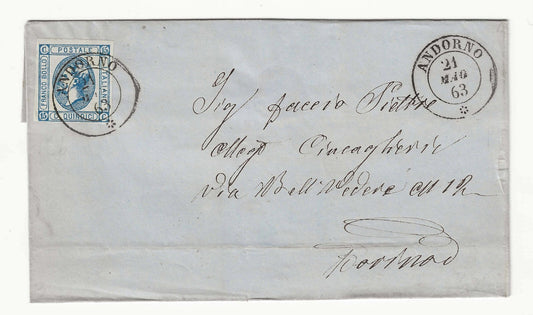 FRANCO BOLLO
POSTALE
ITALIANO
C. QUINDICI
C
15
15
15
ANDORNO
63
ANDORNO
21
MAG
63
Sig. Faccio Pietro
Chincaglierie
via Bell Vedere N 12
Torino